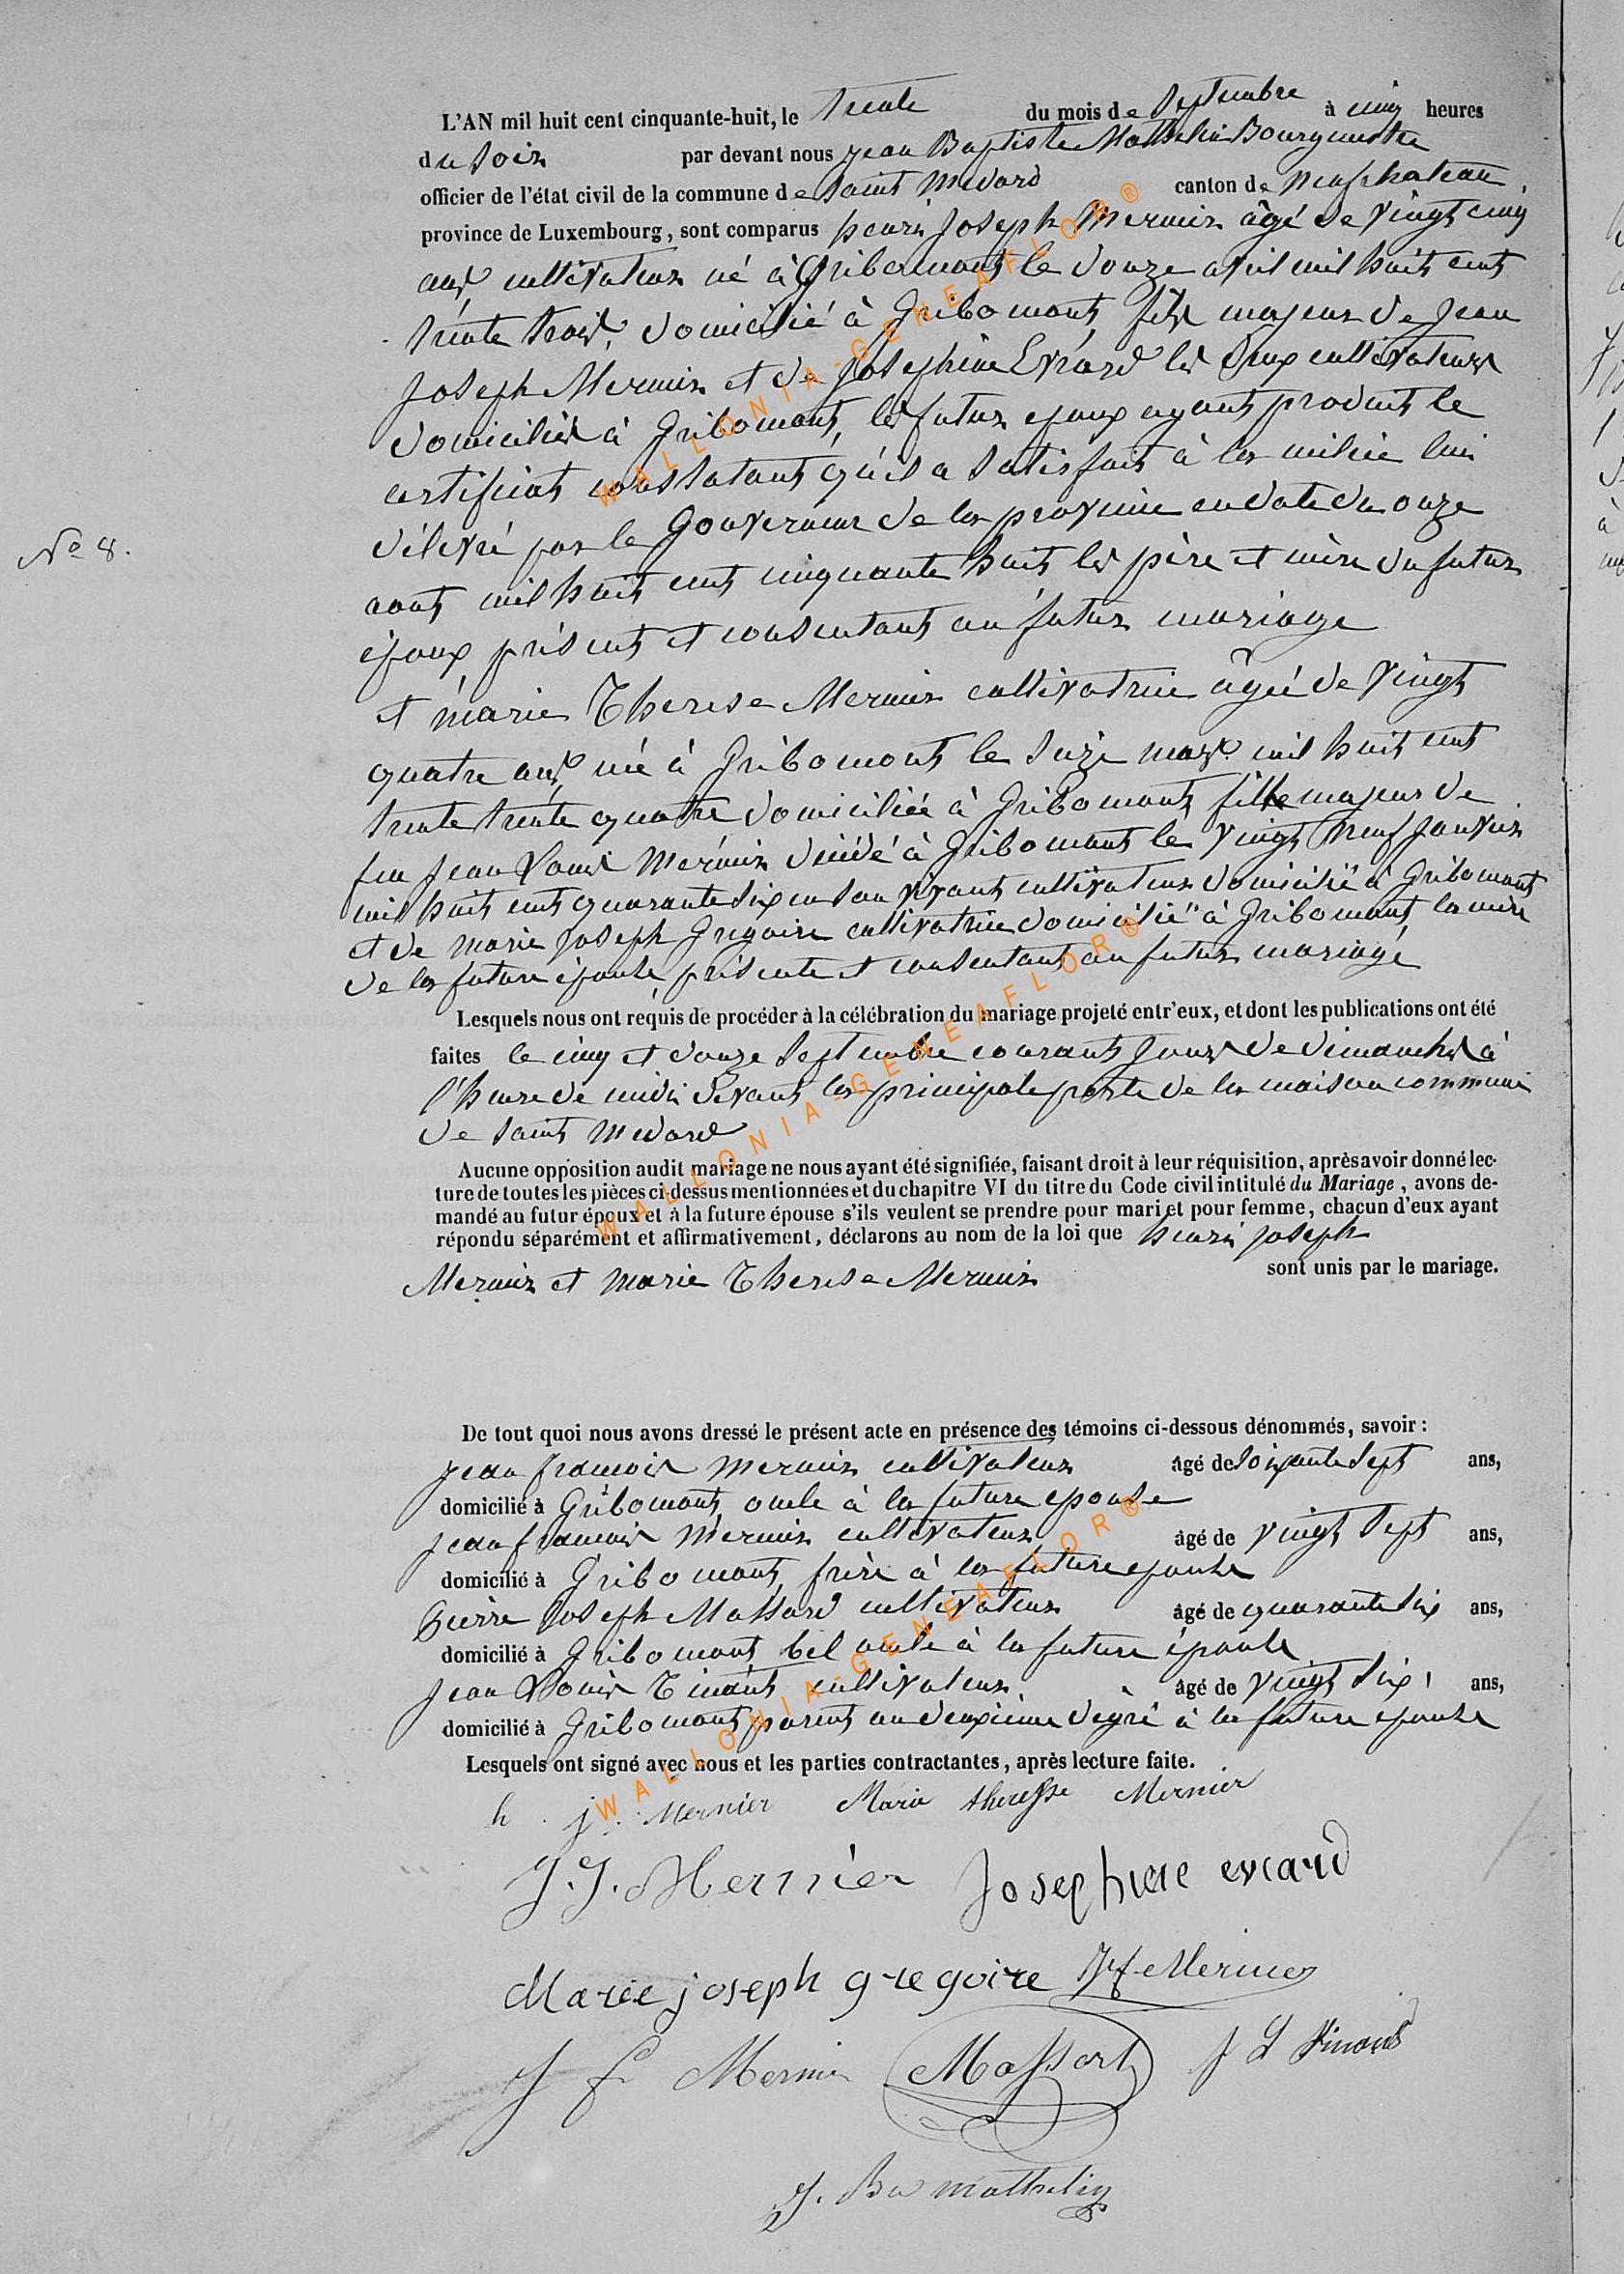 L'AN mil huit cent cinquante-huit, le trente du mois de Septembre à cinq heures
du soir par devant nous jean Baptiste Mathelin Bourgmestre
officier de l'état civil de la commune de saint medard canton de neufchateau
province de Luxembourg, sont comparus henri joseph Mernier âgé de vingt cinq
ans cultivateur né à Gribomont le douze avril mil huit cent
trente trois, domicilié à Gribomont, fils majeur de jean
joseph Mernier et de josephine Evrard les deux cultivateurs
domiciliés à Gribomont, le futur epoux ayant produit le
certificat constatant qu'il a satisfait à la milice lui
délivré par le Gouverneur de la province en date du onze
aout mil huit cent cinquante huit les père et mère du futur
N° 8.
époux présents et consentant au futur mariage
et marie Therese Mernier cultivatrice âgée de vingt
quatre ans née à Gribomont le seize mars mil huit cent
trente trente quatre domiciliée à Gribomont fille majeur de
feu jean Louis Mernier décédé à Gribomont le vingt neuf janvier
mil huit cent quarante six en son vivant cultivateur domicilié à Gribomont
et de marie joseph Gregoire cultivatrice domicilié à Gribomont, la mère
de la future épouse présente et consentant au futur mariage
Lesquels nous ont requis de procéder à la célébration du mariage projeté entr'eux, et dont les publications ont été
faites le cinq et douze septembre courant jours de dimanches à
l'heure de midi devant la principale porte de la maison commune
de saint medard
Aucune opposition audit mariage ne nous ayant été signifiée, faisant droit à leur réquisition, après avoir donné lec-
ture de toutes les pièces ci-dessus mentionnées et du chapitre VI du titre du Code civil intitulé du Mariage, avons de-
mandé au futur époux et à la future épouse s'ils veulent se prendre pour mari et pour femme, chacun d'eux ayant
répondu séparément et affirmativement, déclarons au nom de la loi que henri joseph
Mernier et marie Therese Mernier sont unis par le mariage.
De tout quoi nous avons dressé le présent acte en présence des témoins ci-dessous dénommés, savoir :
jean francois mernier cultivateur âgé de soixante sept ans,
domicilié à Gribomont, oncle à la future epouse
jean francois mernier cultivateur âgé de vingt sept ans,
domicilié à Gribomont, frère à la future epouse
Pierre joseph Massard cultivateur âgé de quarante six ans,
domicilié à Gribomont bel oncle à la future épouse
jean Louis Tinant cultivateur âgé de vingt six ans,
domicilié à Gribomont parent au deuxieme degré à la future epouse
Lesquels ont signé avec nous et les parties contractantes, après lecture faite.
h. j. Mernier Marie theresse Mernier
J. J. Mernier Josephine evrard
Marie joseph gregoire J f Mernier
J f Mernier Massart J L Tinant
J. Bte mathelin
WALLONIA-GENEAFLOR®
WALLONIA-GENEAFLOR®
WALLONIA-GENEAFLOR®